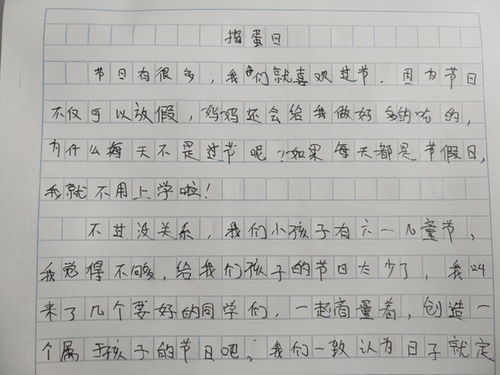 捣蛋日
节日有很多，我们就喜欢过节。因为节日
不仅可以放假，妈妈还会给我做好多好吃的，
为什么每天不是过节呢？如果每天都是节假日，
我就不用上学啦！
不过没关系，我们小孩子有六一儿童节，
我觉得不够，给我们孩子的节日太少了，我叫
来了几个要好的同学们，一起商量着，创造一
个属于孩子的节日吧，我们一致认为日子就定